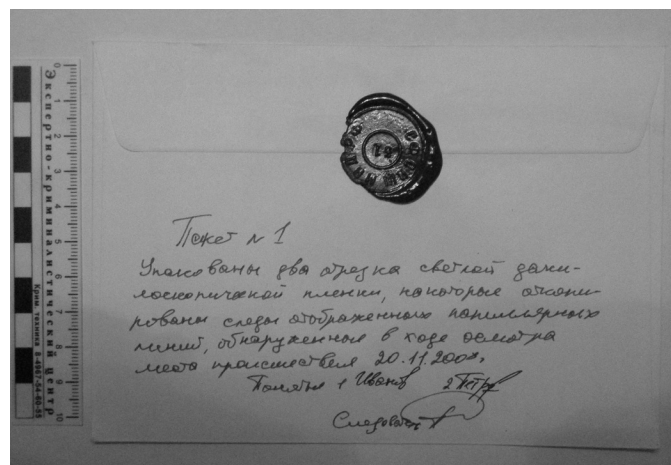 Экспертно-криминалистический центр
Крим. техника 8-4967-64-60-55
0 1 2 3 4 5 6 7 8 9 10
Пакет № 1
Упакованы два отрезка светлой дакти-
лоскопической пленки, на которые откопи-
рованы следы отображенных папиллярных
линий, обнаруженные в ходе осмотра
места происшествия 20.11.200
Понятые 1 Иванов 2 Петров
Следователь